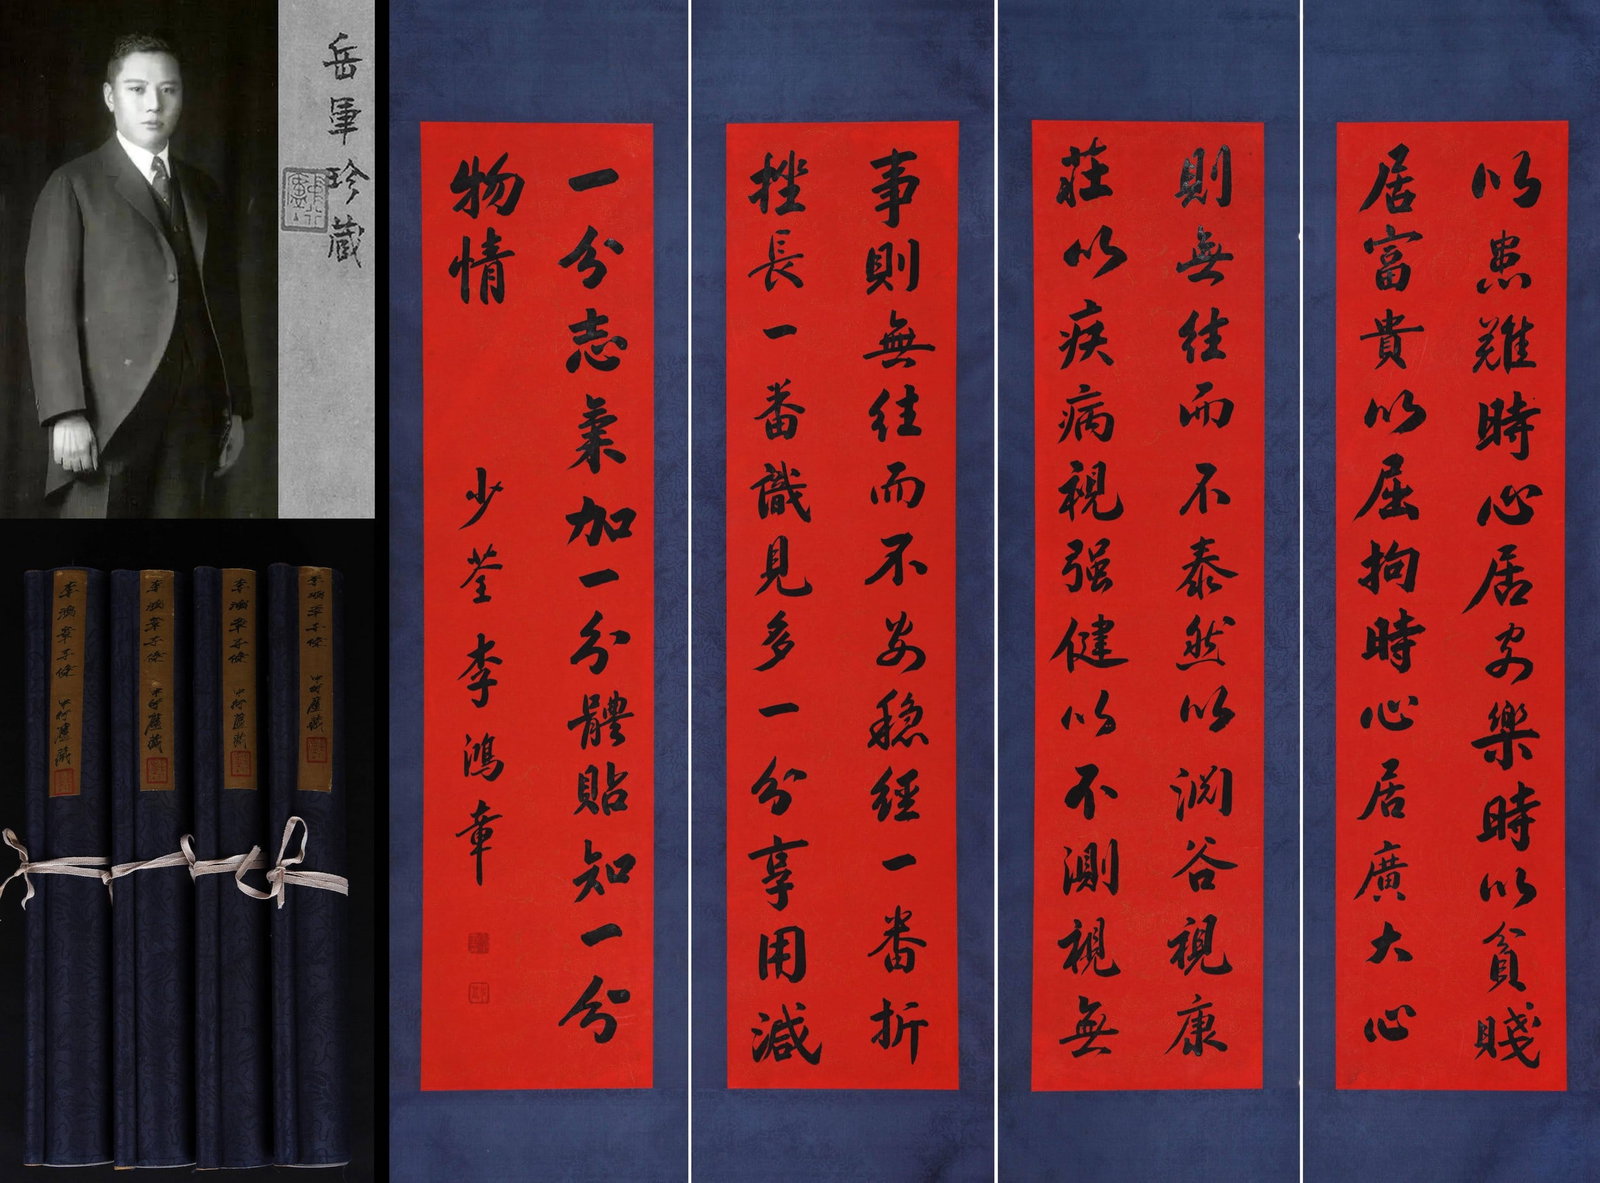 岳軍珍藏
以患難時心居安樂時以貧賤
居富貴以屈拘時心居廣大心
則無往而不泰然以淵谷視康
莊以疾病視强健以不測視無
事則無往而不安穩經一番折
挫長一番識見多一分享用減
一分志氣加一分體貼知一分
物情
少荃李鴻章
李鴻章字條
李鴻章字條
李鴻章字條
李鴻章字條